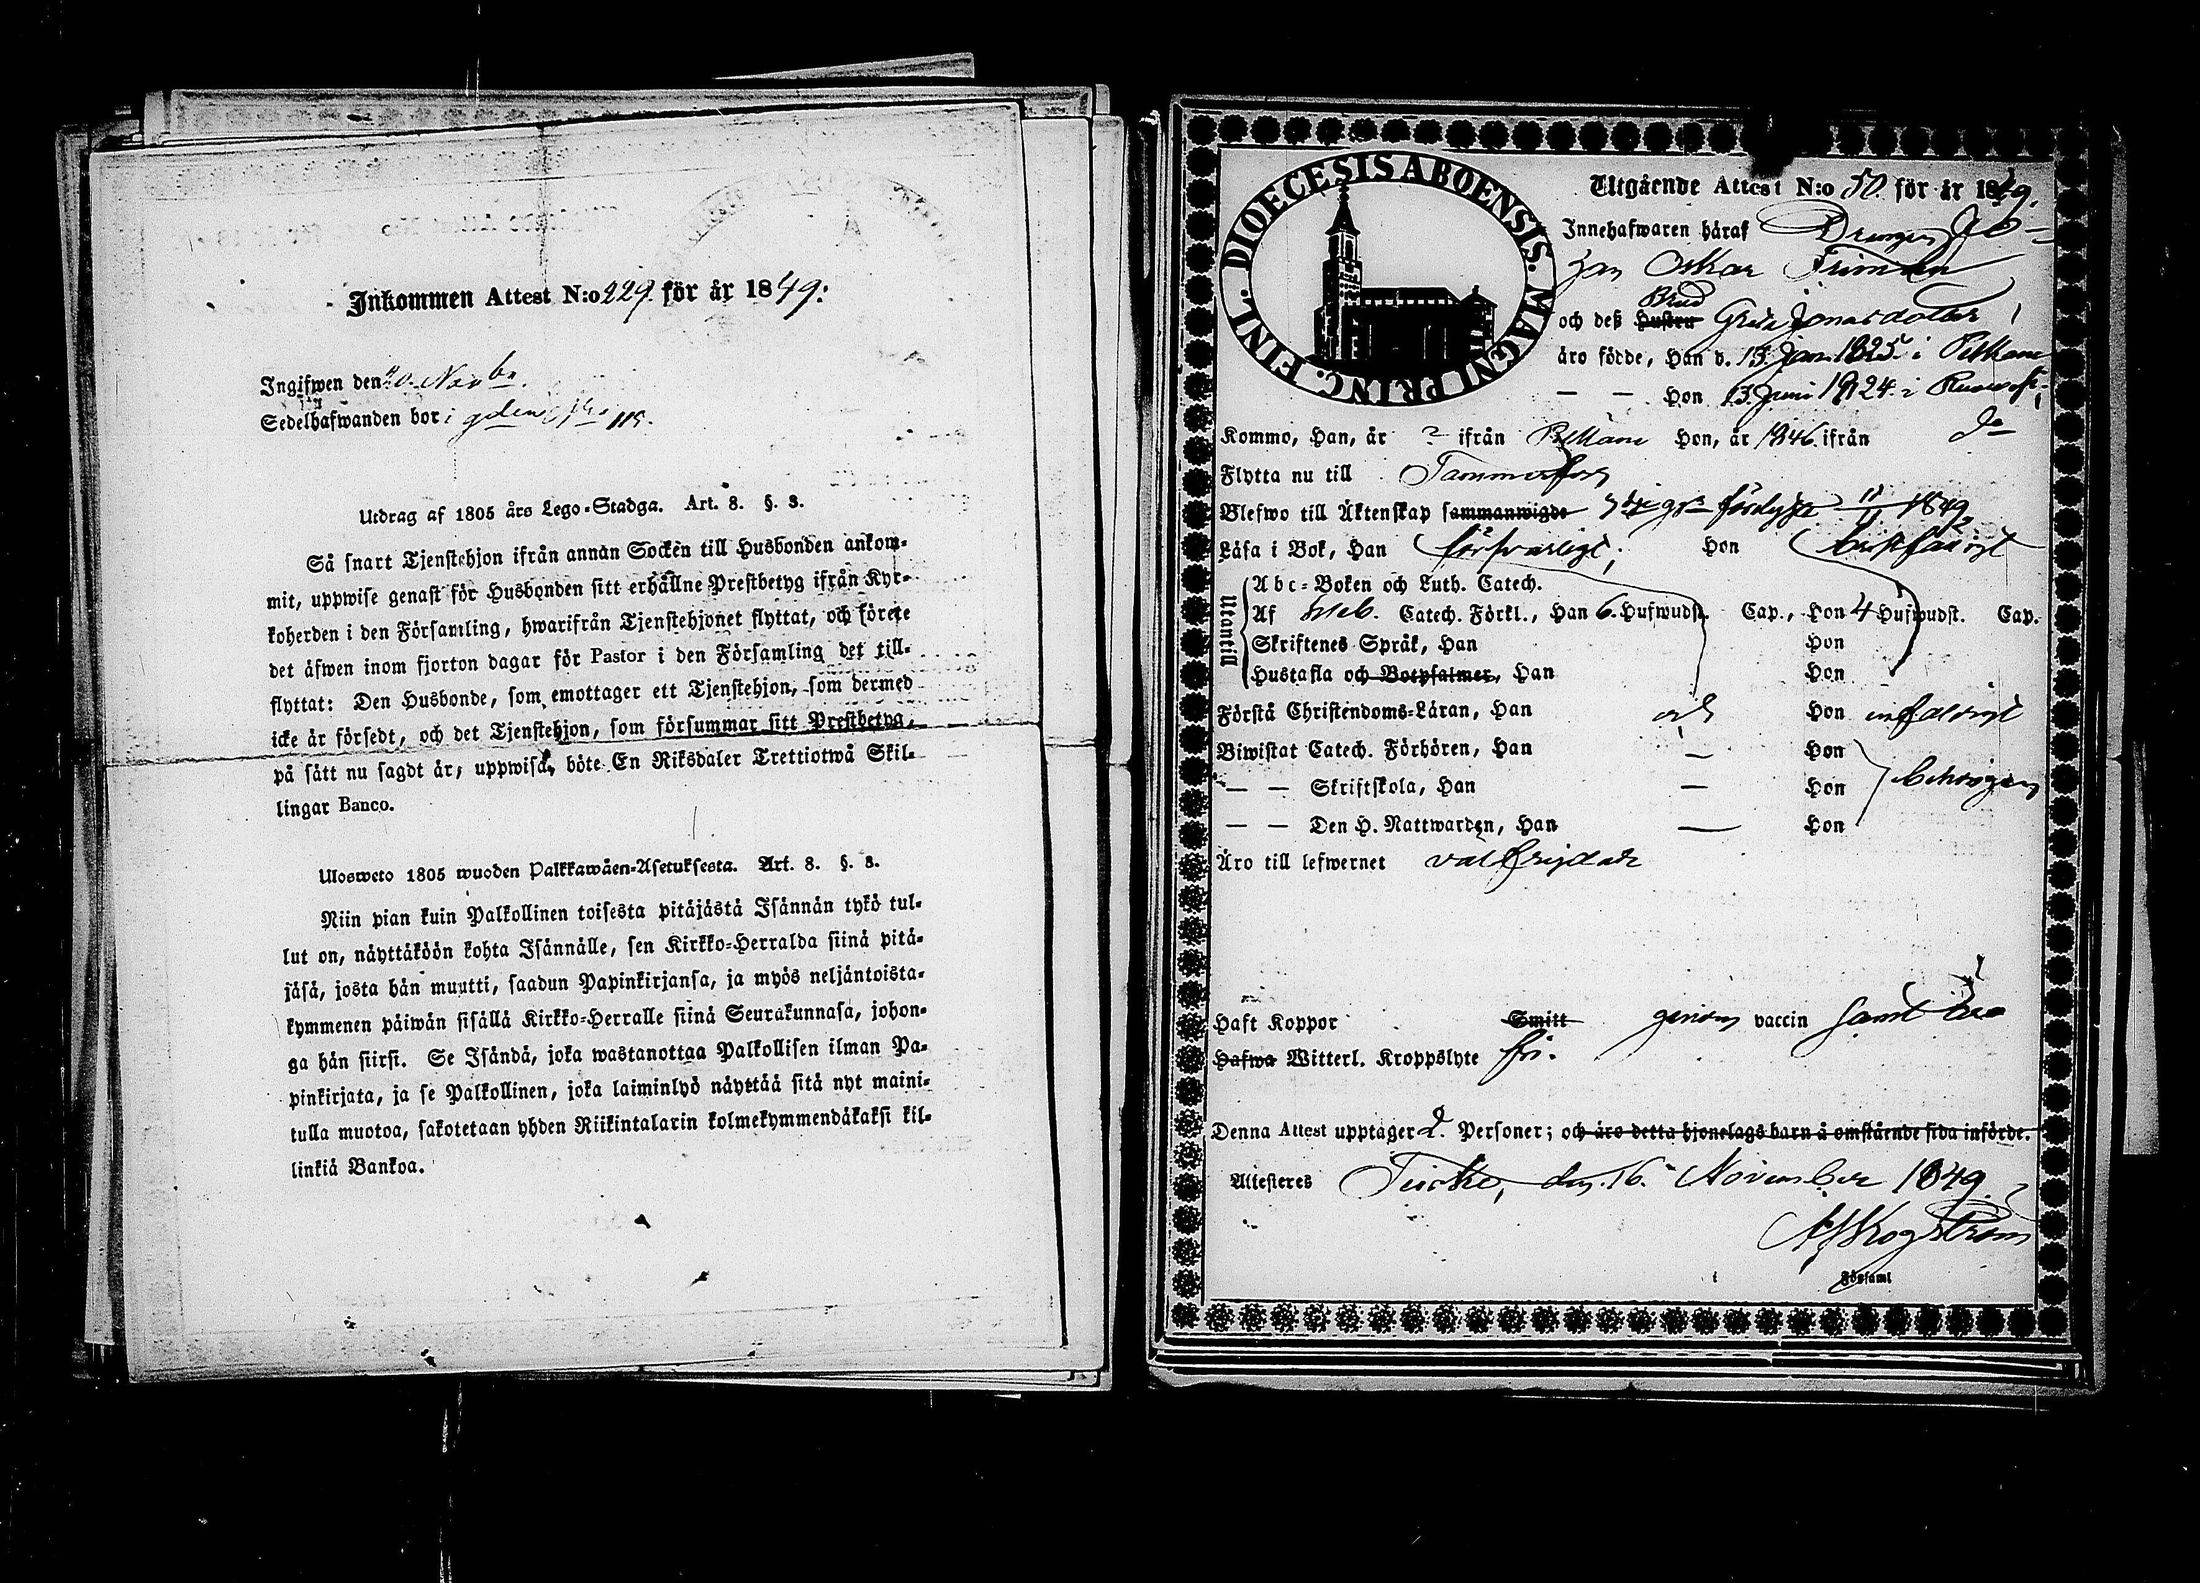 Inkommen Attest N:o 229. för år 1849:
Ingifwen den 20. Novbr.
Sedelhafwanden bor i
Utdrag af 1805 års Lego-Stadga. Art. 8. §. 8.
Så snart Tjenstehjon ifrån annan Socken till Husbonden ankom-
mit, uppwise genast för Husbonden sitt erhållne Prestbetyg ifrån Kyr-
koherden i den Församling, hwarifrån Tjenstehjonet flyttat, och förete
det äfwen inom fjorton dagar för Pastor i den Församling det till-
flyttat: Den Husbonde, som emottager ett Tjenstehjon, som dermed
icke är försedt, och det Tjenstehjon, som försummar sitt Prestbetyg,
på sätt nu sagdt är, uppwisa, böte En Riksdaler Trettiotwå Skil-
lingar Banco.
Ulosweto 1805 wuoden Palkkawäen-Asetuksesta. Art. 8. §. 8.
Niin pian kuin Palkollinen toisesta pitäjästä Isännän tykö tul-
lut on, näyttäköön kohta Isännälle, sen Kirkko-Herralda siinä pitä-
jäsä, josta hän muutti, saadun Papinkirjansa, ja myös neljäntoista-
kymmenen päiwän sisällä Kirkko-Herralle siinä Seurakunnasa, johon-
ga hän siirsi. Se Isändä, joka wastanottaa Palkollisen ilman Pa-
pinkirjata, ja se Palkollinen, joka laiminlyö näyttää sitä nyt maini-
tulla muotoa, sakotetaan yhden Riikintalarin kolmekymmendäkaksi kil-
linkiä Bankoa.
DIOECESIS ABOENSIS. MAGNI PRINC. FINL.
Utgående Attest N:o 50. för år 1849.
Innehafwaren häraf Drengen Jo-
han Oskar Friman
Brud
och deß Hustru Greta Jonasdotter
äro födde, Han d. 13 Jan. 1825 i Pelkäne
— — Hon 13. Juni 1824. i
Kommo, Han, år ? ifrån Pelkäne Hon, år 1846. ifrån do
Flytta nu till Tammerfors
Blefwo till Äktenskap sammanwigde 3dje gn förlysta 11/11 1849
Läsa i Bok, Han försvarligt; Hon bristfälligt
Utantill
Abc-Boken och Luth. Catech.
Af Catech. Förkl., Han 6. Hufwudst. Cap., Hon 4 Hufwudst. Cap.
Skriftenes Språk, Han Hon
Hustafla och Botpsalmer, Han Hon
Förstå Christendoms-Läran, Han och Hon enfaldigt
Biwistat Catech. Förhören, Han — Hon
— — Skriftskola, Han — Hon behörigen
— — Den H. Nattwarden, Han — Hon
Äro till lefwernet välfrejdade
Haft Koppor Smitt genom vaccin samt äro
Hafwa Witterl. Kroppslyte fri.
Denna Attest upptager 2. Personer; och äro detta hjonelags barn å omstående sida införde.
Attesteres Teisko, den 16. November 1849.
Skogström
i Församl